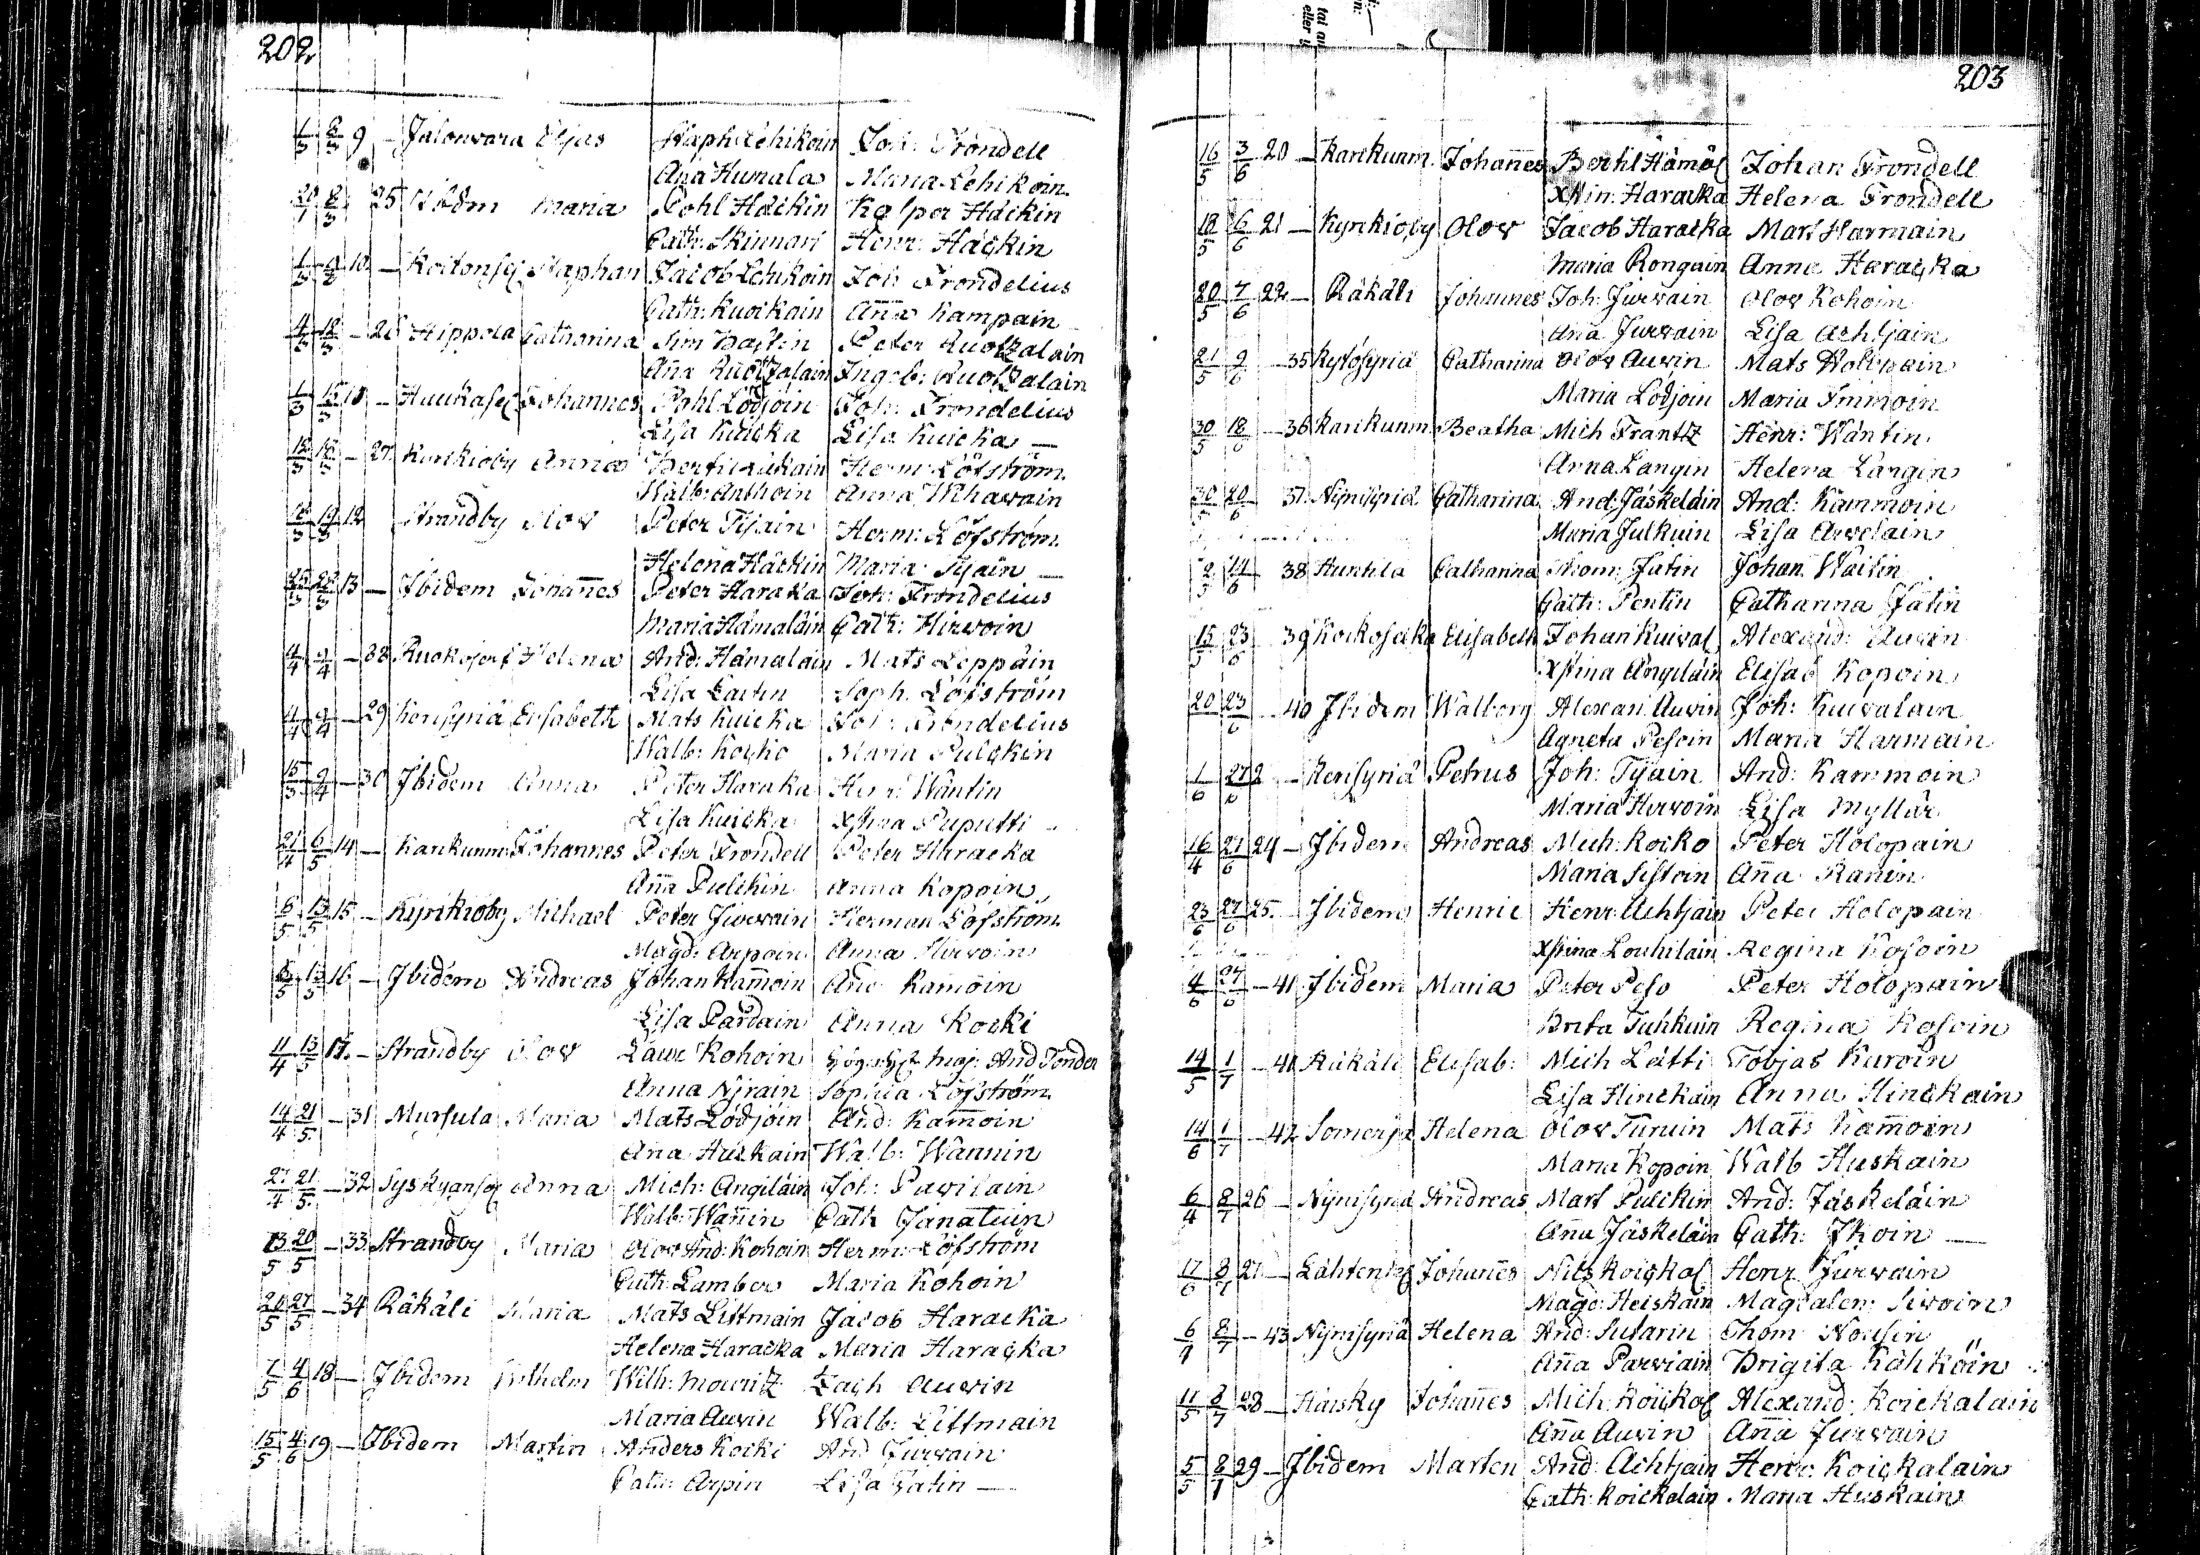 202
1/3 8/3 9 – Jalonvara Eljas Staph: Lehikoin Joh: Frondell
Aña Humala Maria Lehikoin
8/3 25 Ibidm Maria Pohl Häckin Kasper Häckin
Cath: Skinnari Henr: Häckin
1/3 10 – Koitonsy Staphan Jacob Lehikoin Joh Frondelius
Cath: Kuickain Aña Kampain
4/3 12/3 – 26 Hippola Catharina Sim Hactin Peter Ruotzalain
Aña Ruotzalain Ingeb: Ruotzalain
1/3 15/3 Haukasel Johannes Pohl Lödjöin Joh: Frondelius
Lisa Kuicka Lisa Kuicka –
– 27 Kyrkioby Anna Herm: Löfström
Walb: Anthoin Anna Wihavain
12 Strandby Olov Peter Tijain Herm: Löfström
Helena Häckin Maria Tijain –
13 – Ibidem Johañes Peter Haracka Joh: Frondelius
Maria Hämäläin Cath: Hirvoin
4/4 – 28 Ruokojerf Helena And: Hämäläin Mats Leppäin
Lisa Laitin Soph: Löfström
4/4 – 29 Kerisyriä Elisabeth Mats Kuicka Joh: Frondelius
Walb: Kocko Maria Pulckin
15/3 – 30 Ibidem Anna Peter Haracka Henr: Wäntin
Lisa Kuicka Xstina Puputti –
21/4 6/5 14 – Karikunm: Johannes Peter Frondell Peter Haracka
Aña Pulckin Anna Kopoin
6/5 13/5 15 – Kyrkioby Michael Peter Jurvain Herman Löfström
Magd: Arpoin Anna Hirvoin
8/5 13/5 16 – Ibidem Andreas Johan Kam̃oin And Kam̃oin
Lisa Pardain Anna Kocki
11/4 13/5 17 – Strandby Olov Laur Kohoin Maj: And Tonder
Anna Nyrain Sophia Löfström
14/4 21/5 – 31 Mursula Maria Mats Lödjöin And: Kam̃oin
Aña Huskain Walb: Wannin
27/4 21/5 – 32 Syskyänsel Anna Mich: Angiläin Joh: Pavilain
Walb: Wañin Cath Janatuin
13/5 20/5 – 33 Strandby Maria Olov And: Kohoin Herm: Löfström
Cath: Lamber Maria Kohoin
21/5 27/5 – 34 Räkäli Maria Mats Littmain Jacob Haracka
Helena Haracka Maria Haracka
7/5 4/6 18 – Ibidem Wilhelm Wilh: Mouritz Zach Auvin
Maria Auvin Walb: Littmain
15/5 4/6 19 – Ibidem Martin Anders Kocki And Jurvain
Cath: Arpin Lisa Tatin –
203
16/5 3/6 20 – Karikunm. Johañes Bertil Hämäl Johan Frondell
Xstin: Haracka Helena Frondell
18/5 6/6 21 – Kyrkioby Olov Jacob Haracka Mart Harmain
Maria Rongain Anna Haracka
20/5 7/6 22 – Räkäli Johannes Joh: Jurvain Olov Kohoin
Aña Jurvain Lisa Achtjain
21/5 9/6 – 35 Kytösyriä Catharina Olov Auvin Mats Holopain
Maria Lödjoin Maria Immoin
30/5 18/6 – 36 Karikunm Beatha Mich Frantz Henr: Wäntin
Anna Langin Helena Langin
30/5 20/6 37 Niinisyriä Catharina And: Jäskeläin And: Kammoin
Maria Julkuin Lisa Arvelain
38 Huntila Catharina Thom: Jatin Johan Waitin
Cath: Pentin Catharina Jatin
15/5 23/6 39 Kockoselka Elisabeth Johan Kuival Alexand: Auvin
Xstina Angiläin Elisab Kopoin
20 23/6 40 Ibidem Walborg Alexan: Auvin Joh: Kuivalain
Agneta Pesoin Maria Harmain
1/6 27/6 2 – Kerisyriä Petrus Joh: Tijain And: Kammoin
Maria Hirvoin Lisa Myllär
16/4 27/6 24 – Ibidem Andreas Mich: Kocko Peter Holopain
Maria Sistoin Aña Ranin
23/6 27/6 25 – Ibidem Henric Henr: Achtjain Peter Holopain
Xstina Louhilain Regina Kosoin
4/6 27/6 – 41 Ibidem Maria Peter Peso Peter Holopain
Brita Tuhkuin Regina Kosoin
14/5 1/7 – 41 Räkäli Elisab: Mich Lätti Tobjas Kuroin
Lisa Hinckain Anna Hinckain
14/6 1/7 – 42 Somerja Helena Olov Turuin Mats Kam̃oin
Maria Kopoin Walb Huskain
6/4 8/7 26 – Niinisyriä Andreas Mart Pulckin And: Jäskeläin
Aña Jäskeläin Cath: Ikoin –
17/6 8/7 27 – Lähtensel Johañes Nils Koickal Henr Jurvain
Magd: Heiskain Magdalen: Sivoin
6/7 8/7 – 43 Niinisyriä Helena And: Sutarin Thom Nousin
Aña Parviain Brigita Kähköin
11/5 8/7 28 – Häusky Johañes Mich: Koickal Alexand: Koickalain
Aña Auvin Aña Jurvain
5/5 8/7 29 – Ibidem Marten And: Achtjain Henr: Koickalain
Cath: Koickelain Maria Huskain